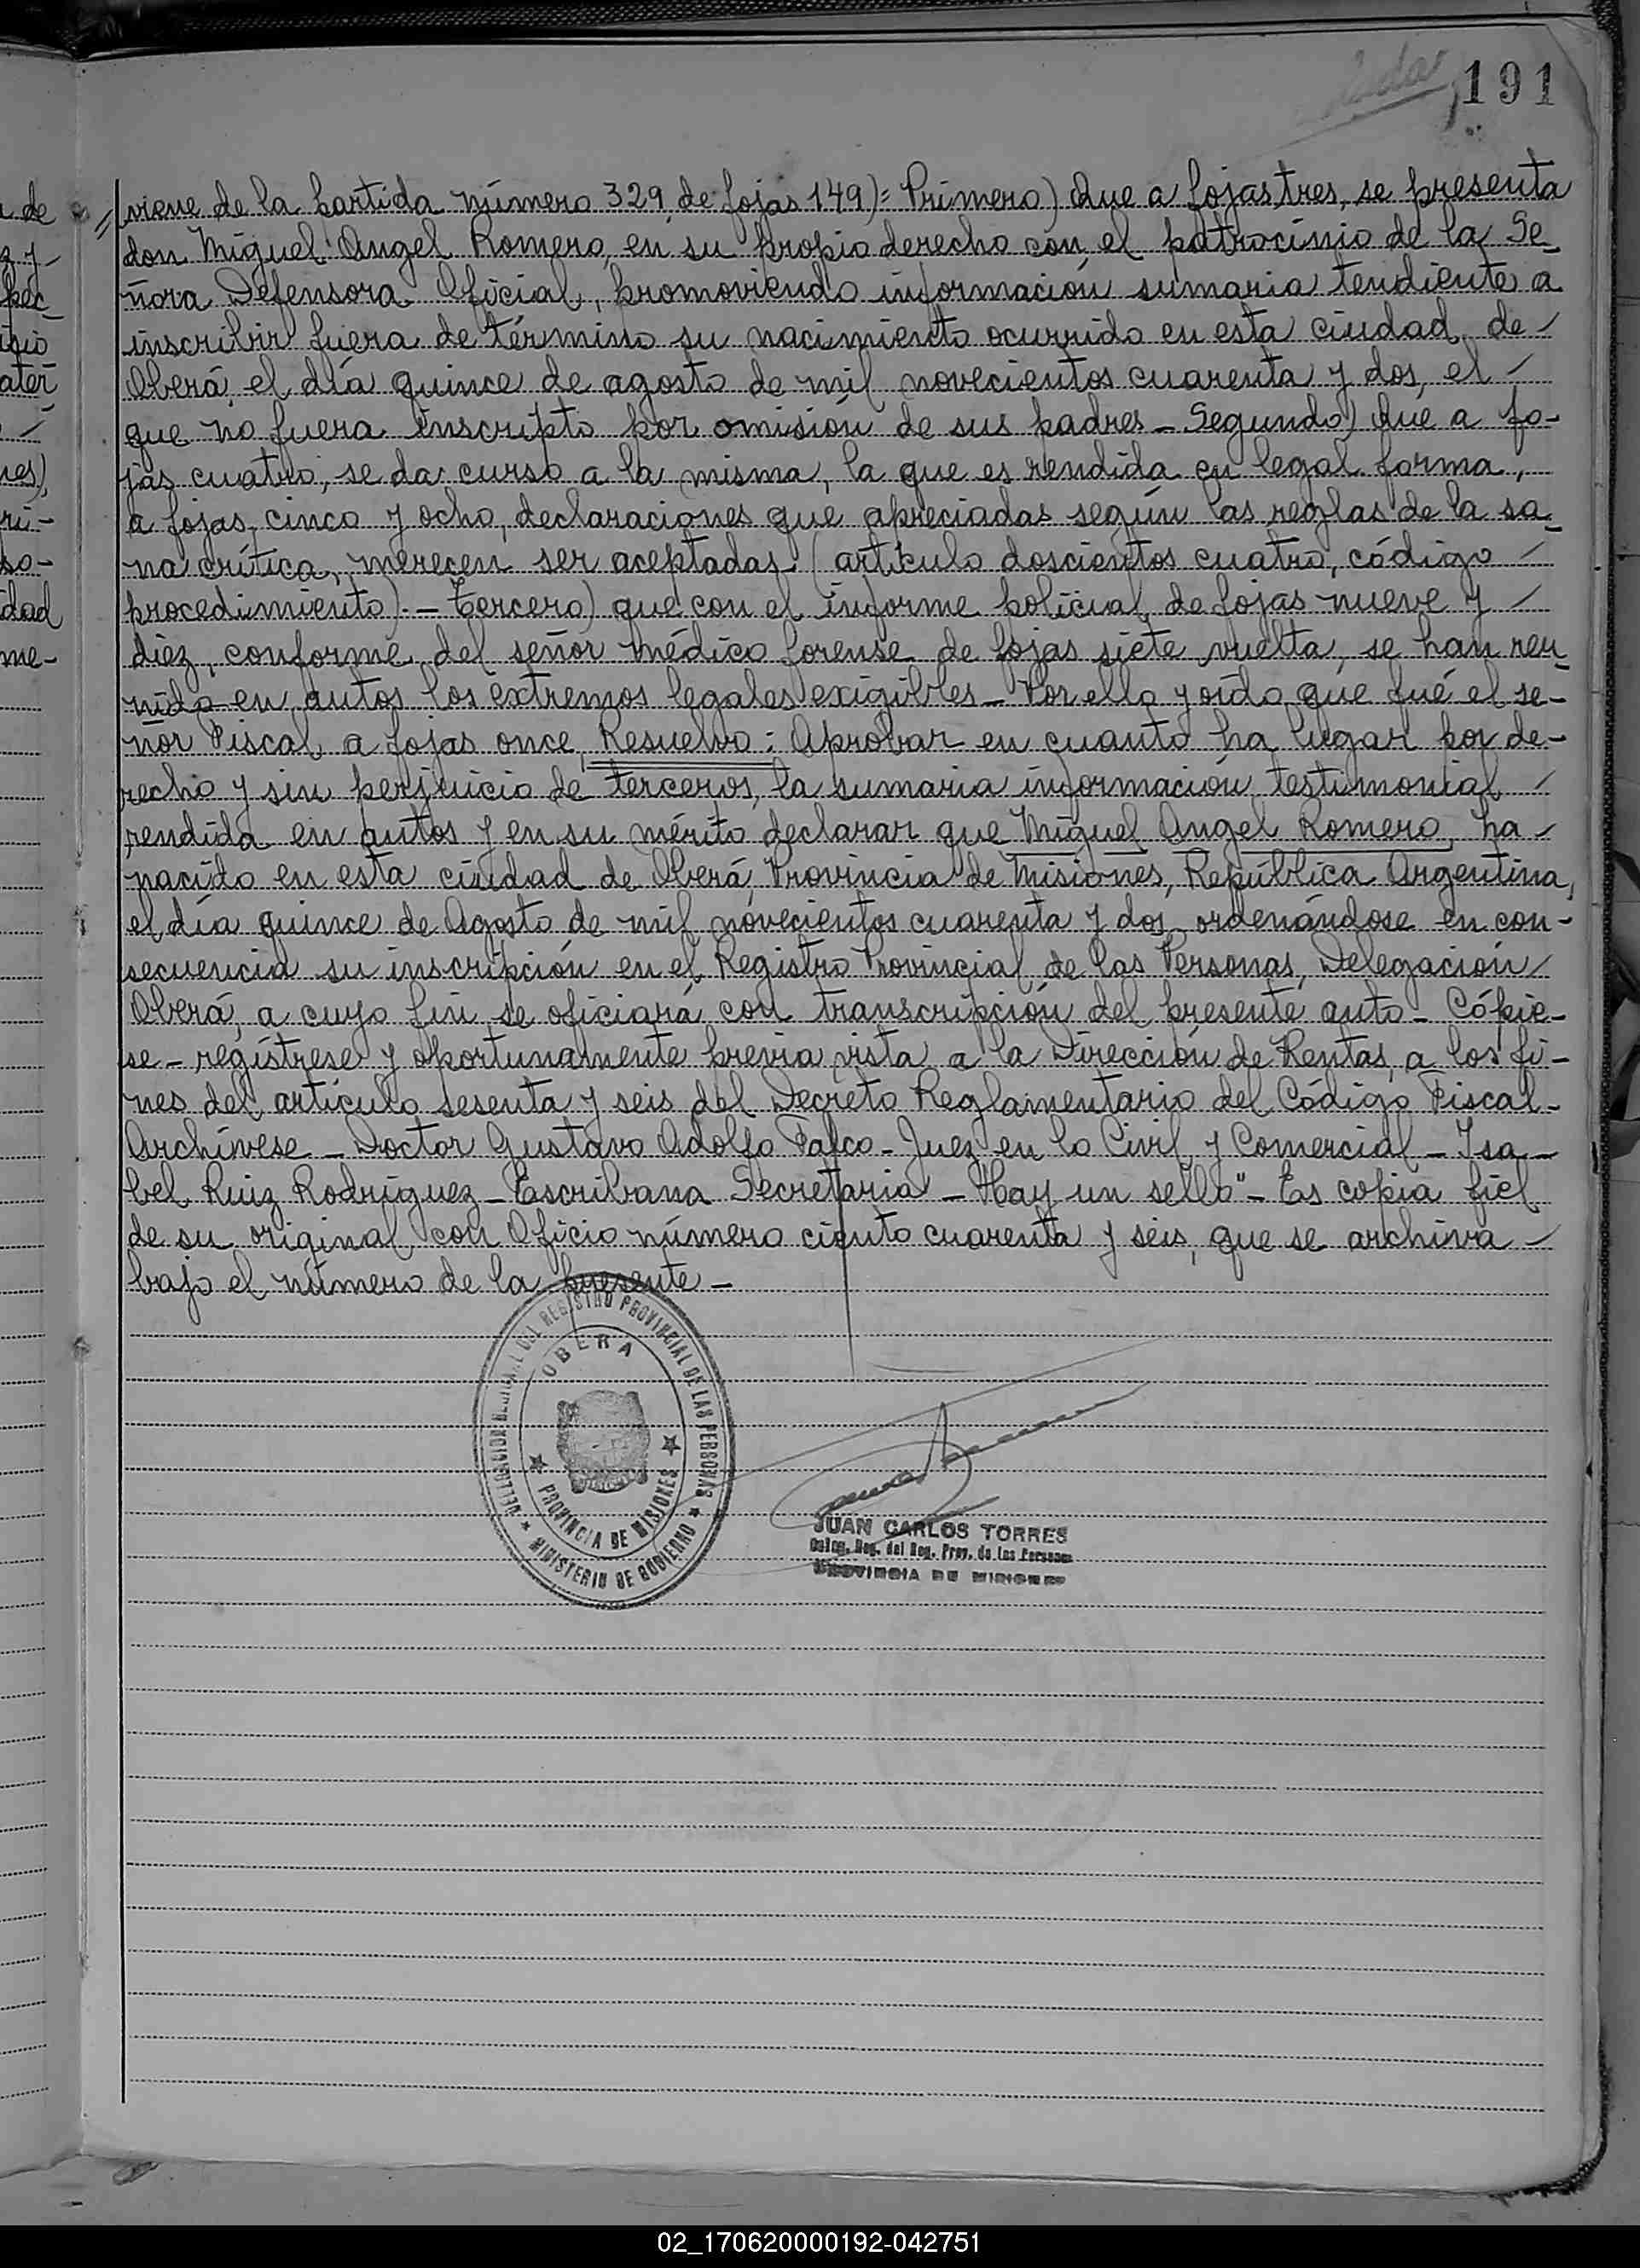 191
(viene de la partida número 329, de fojas 149)= Primero) Que a fojas tres, se presenta
don Miguel Angel Romero, en su propio derecho con el patrocinio de la Se-
ñora Defensora Oficial, promoviendo información sumaria tendiente a
inscribir fuera de término su nacimiento ocurrido en esta ciudad de
Oberá, el día quince de agosto de mil novecientos cuarenta y dos, el
que no fuera inscripto por omisión de sus padres - Segundo) Que a fo-
jas cuatro, se da curso a la misma, la que es rendida en legal forma,
a fojas cinco y ocho, declaraciones que apreciadas según las reglas de la sa-
na crítica, merecen ser aceptadas (artículo doscientos cuatro, código
procedimiento).- Tercero) que con el informe policial de fojas nueve y
diez, conforme del señor médico forense de fojas siete vuelta, se han reu-
nido en autos los extremos legales exigibles - Por ello y oído que fué el se-
ñor Fiscal a fojas once, Resuelvo: Aprobar en cuanto ha lugar por de-
recho y sin perjuicio de terceros, la sumaria información testimonial
rendida en autos y en su mérito declarar que Miguel Angel Romero, ha
nacido en esta ciudad de Oberá, Provincia de Misiones, República Argentina,
el día quince de Agosto de mil novecientos cuarenta y dos, ordenándose en con-
secuencia su inscripción en el Registro Provincial de las Personas, Delegación
Oberá, a cuyo fin se oficiará con transcripción del presente auto - Cópie-
se - regístrese y oportunamente previa vista a la Dirección de Rentas, a los fi-
nes del artículo sesenta y seis del Decreto Reglamentario del Código Fiscal -
Archívese - Doctor Gustavo Adolfo Falco - Juez en lo Civil y Comercial - Isa-
bel Ruiz Rodríguez - Escribana Secretaria - "Hay un sello" - Es copia fiel
de su original con Oficio número ciento cuarenta y seis, que se archiva
bajo el número de la presente -
DEL REGISTRO PROVINCIAL DE LAS PERSONAS
OBERA
PROVINCIA DE MISIONES
MINISTERIO DE GOBIERNO
JUAN CARLOS TORRES
Deleg. Reg. del Reg. Prov. de las Personas
PROVINCIA DE MISIONES
02_170620000192-042751